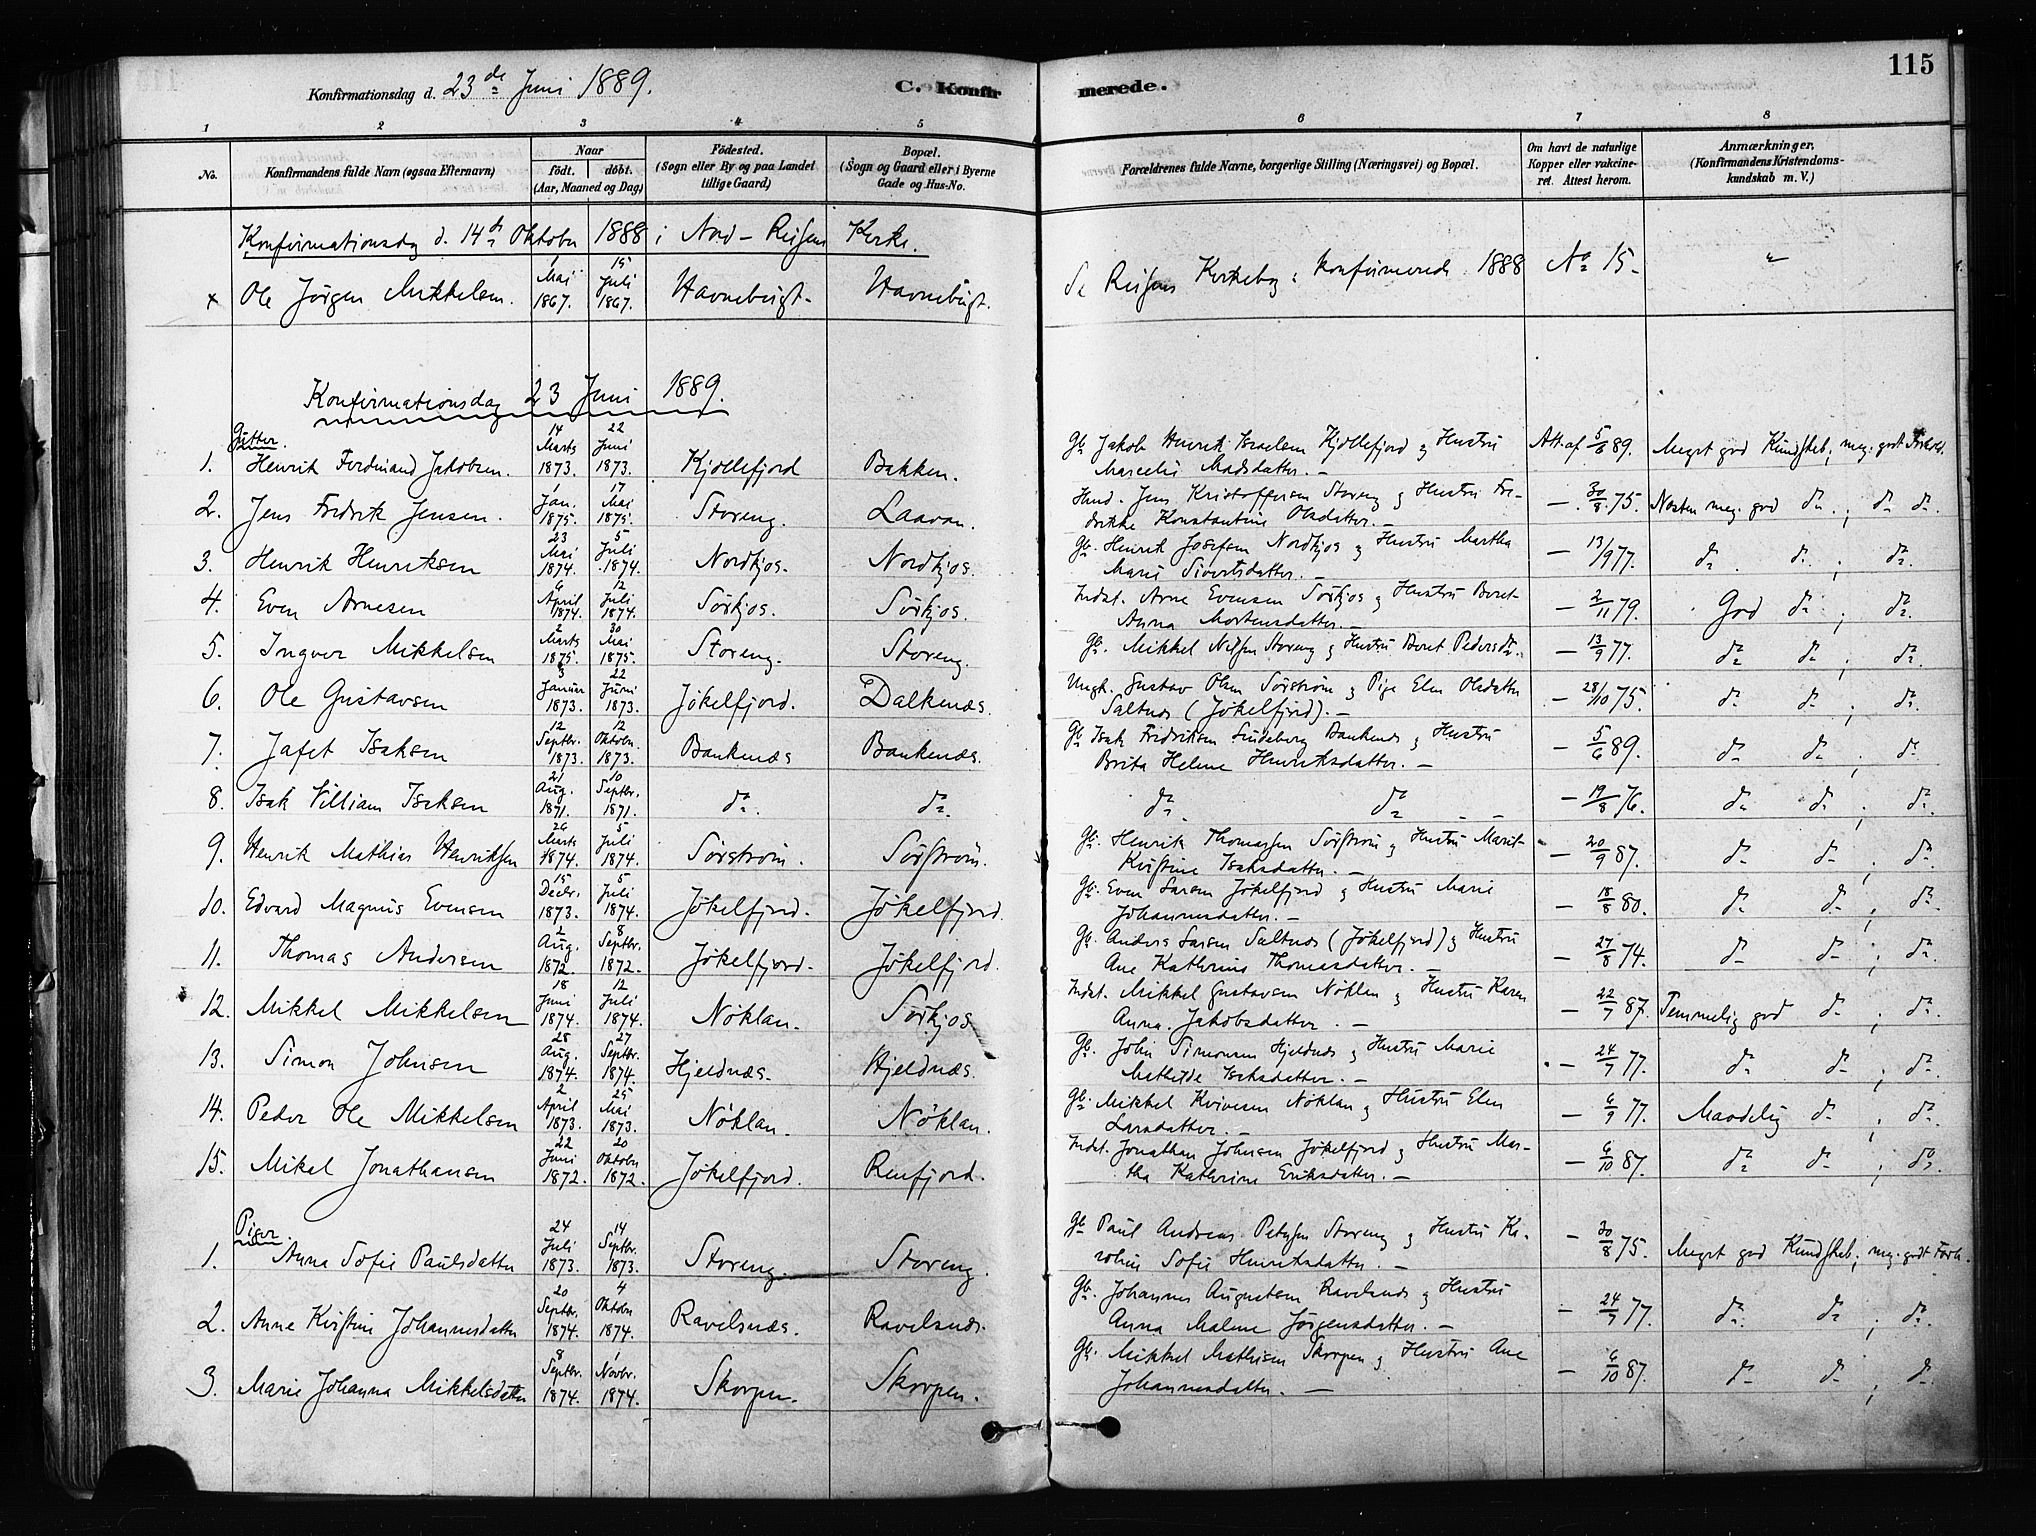 115
Konfirmationsdag d. 23de Juni 1889. C. Konfirmerede.
1 2 3 4 5 6 7 8
No. Konfirmandens fulde Navn (ogsaa Efternavn) Naar født. døbt. (Aar, Maaned og Dag) Fødested. (Sogn eller By og paa Landet tillige Gaard) Bopæl. (Sogn og Gaard eller i Byerne Gade og Hus-No. Forældrenes fulde Navne, borgerlige Stilling (Næringsvei) og Bopæl. Om havt de naturlige Kopper eller vakcineret. Attest herom. Anmærkninger, (Konfirmandens Kristendomskundskab m. V.)
Konfirmationsdag d. 14de Oktober 1888 i Nord-Reisens Kirke.
x Ole Jörgen Mikkelsen. 1 Mai 1867. 15 Juli 1867. Havnebugt. Havnebugt. Se Reisens Kirkebog: konfirmerede 1888 No 15. "
Konfirmationsdag 23 Juni 1889.
Gutter.
1. Henrik Ferdinand Jakobsen. 14 Marts 1873. 22 Juni 1873. Kjøllefjord Bakken. Gb. Jakob Henrik Israelsen Kjøllefjord og Hustru Marcelie Madsdatter. — Att. af 5/6 89. Meget god Kundskab; meg. godt Forhold.
2. Jens Fredrik Jensen. 1 Jan. 1875. 17 Mai 1875. Storeng. Laavan. Husd. Jens Kristoffersen Storeng og Hustru Fredrikke Konstantine Olsdatter. — — 30/8 75. Næsten meg. god do.; do do.
3. Henrik Henriksen 23 Mai 1874. 5 Juli 1874. Nordkjos. Nordkjos. Gb. Henrik Josefsen Nordkjos og Hustru Martha Marie Sivertsdatter. — — 13/9 77. do do; do.
4. Even Arnesen 6 April 1874. 12 Juli 1874. Sørkjos. Sørkjos. Indst. Arne Evensen Sørkjos og Hustru Beret Anna Mortensdatter. — — 2/11 79. God do; do.
5. Ingver Mikkelsen 2 Marts 1875. 30 Mai 1875. Storeng. Storeng. Gb. Mikkel Nilsen Storeng og Hustru Beret Pedersdr. — 13/9 77. do do; do.
6. Ole Gustavsen 3 Januar 1873. 22 Juni 1873. Jøkelfjord. Dalkenæs. Ungk. Gustav Olsen Sørstrøm og Pige Elen Olsdatter Saltnes (Jøkelfjord). — — 28/10 75. do do; do.
7. Jafet Isaksen 12 Septbr. 1873. 12 Oktober 1873. Bankenæs Bankenæs. Gb Isak Fredriksen Lindeborg Bankenes og Hustru Brita Helene Henriksdatter. — — 5/6 89. do do; do
8. Isak Villiam Isaksen 21 Aug. 1871. 10 Septbr. 1871. do. do. do. do — 19/8 76. do do; do.
9. Henrik Mathias Henriksen 26 Marts 1874. 5 Juli 1874. Sørstrøm. Sørstrøm. Gb. Henrik Thomassen Sørstrøm og Hustru Marit Kristine Isaksdatter. — — 20/9 87. do do; do.
10. Edvard Magnus Evensen 15 Decbr. 1873. 5 Juli 1874. Jøkelfjord. Jøkelfjord. Gb. Even Larsen Jøkelfjord og Hustru Marie Johannesdatter. — — 18/8 80. do do; do.
11. Thomas Andersen 2 Aug. 1872. 8 Septbr. 1872. Jøkelfjord. Jøkelfjord. Gb. Anders Larsen Saltnes (Jøkelfjord) og Hustru Ane Kathrine Thomasdatter. — — 27/8 74. do do; do.
12. Mikkel Mikkelsen 18 Juni 1874. 12 Juli 1874. Nøklan. Sørkjos Indst. Mikkel Gustavsen Nøklen og Hustru Karen Anna Jakobsdatter. — — 22/7 87. Temmelig god do; do.
13. Simon Johnsen 28 Aug. 1874. 27 Septbr. 1874. Hjeldnæs. Hjeldnæs. Gb. John Simonsen Hjeldnes og Hustru Marie Mathilde Isaksdatter. — — 24/7 77. do do; do.
14. Peder Ole Mikkelsen 2 April 1873. 25 Mai 1873. Nöklan. Nöklan. Gb. Mikkel Kvivesen Nöklan og Hustru Elen Larsdatter. — — 6/9 77. Maadelig do; do.
15. Mikal Jonathansen 22 Juni 1872. 20 Oktober 1872. Jøkelfjord. Reinfjord. Indst. Jonathan Johnsen Jøkelfjord og Hustru Martha Kathrine Eriksdatter. — — 6/10 87. do do; do.
Piger.
1. Anna Sofie Paulsdatter 24 Juli 1873. 14 Septbr. 1873. Storeng. Storeng. Gb Paul Andreas Petersen Storeng og Hustru Karoline Sofie Henriksdatter. — — 30/8 75. Meget god Kundskab; meg. godt Forh.
2. Anne Kristine Johannesdatter 20 Septbr. 1874. 4 Oktober 1874. Ravelsnæs. Ravelsnæs. Gb. Johannes Augustsen Ravelsnæs og Hustru Anna Malene Jørgensdatter. — — 24/7 77. do do; do.
3. Marie Johanna Mikkelsdatter 8 Septbr. 1874. 1 Novbr. 1874. Skorpen. Skorpen. Gb. Mikkel Mathisen Skorpen og Hustru Ane Johannesdatter. — — 6/10 87. do do; do